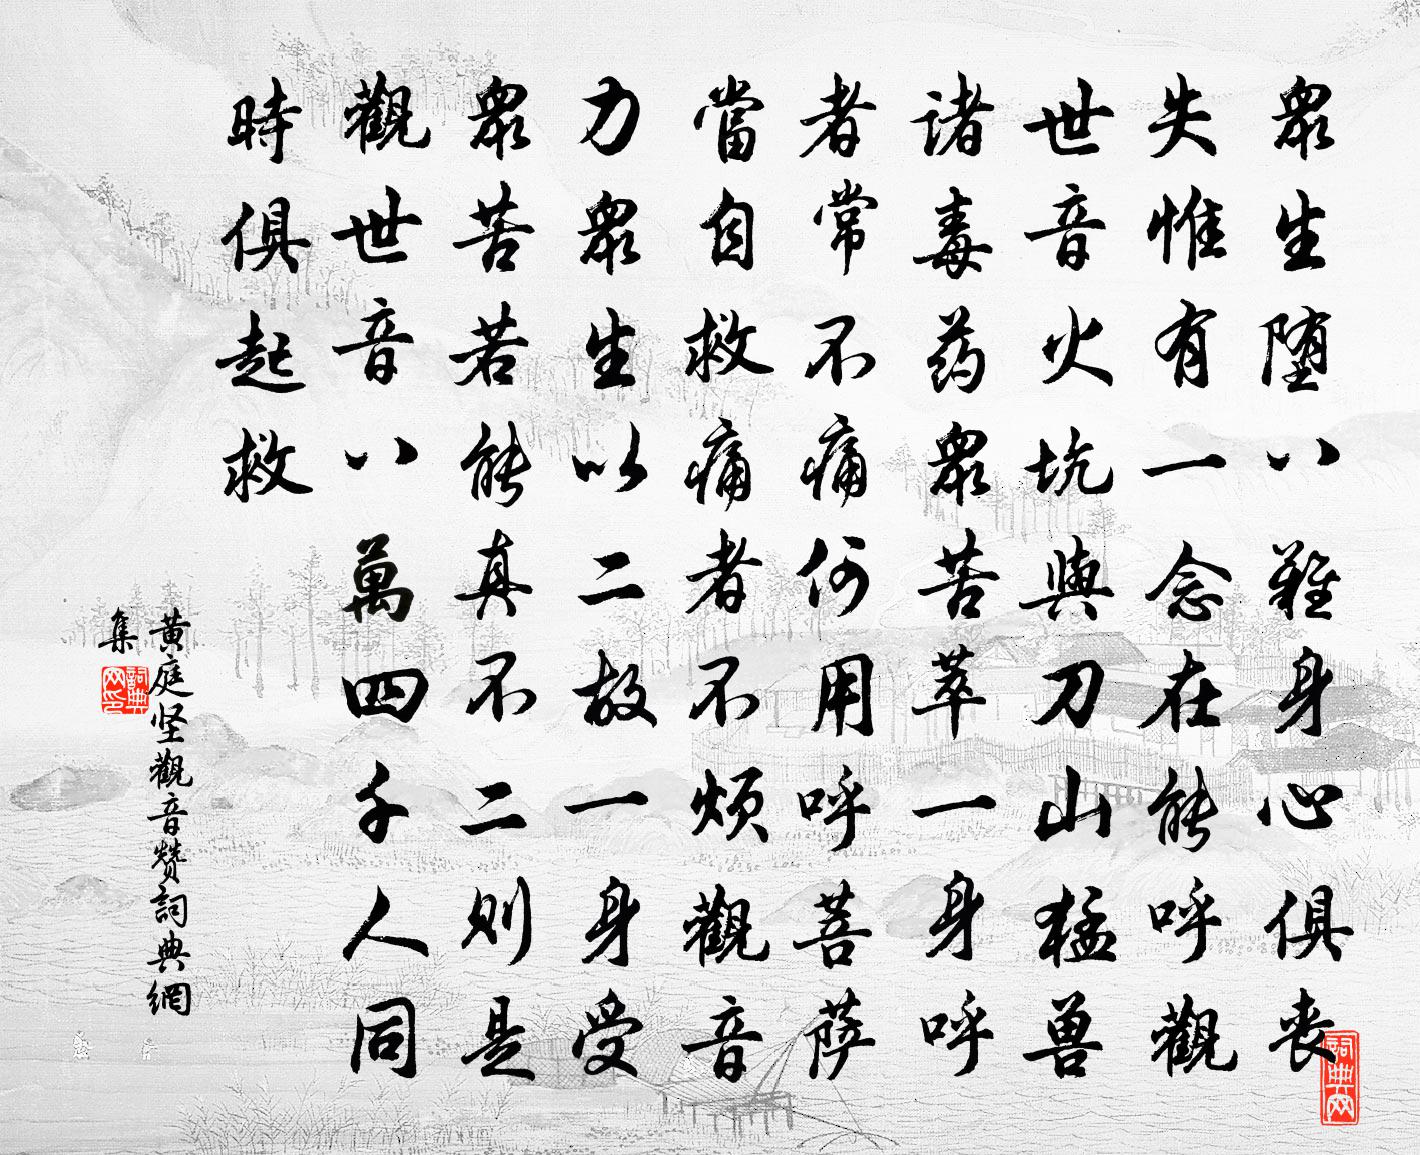 眾生堕八難身心俱丧
失惟有一念在能呼觀
世音火坑與刀山猛兽
诸毒药眾苦萃一身呼
者常不痛何用呼菩萨
當自救痛者不烦觀音
力眾生以二故一身受
眾苦若能真不二則是
觀世音八萬四千人同
時俱起救
黄庭坚觀音赞詞典網
集
詞典网
詞典网印